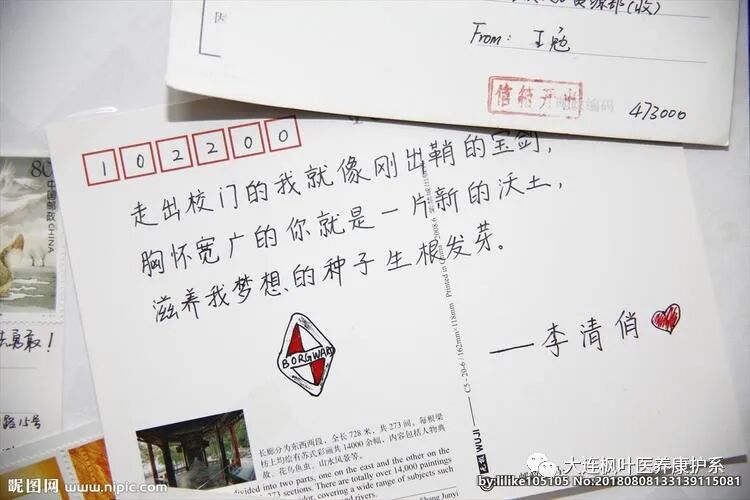 资源部(收)
From: 王勉
473000
102200
走出校门的我就像刚出鞘的宝剑,
胸怀宽广的你就是一片新的沃土,
滋养我梦想的种子生根发芽。
——李清俏
BORGWARD
80
中国邮政
CHINA
路15号
长廊分为东西两段,全长728米,共273间。每根梁
枋上均绘有苏式彩画共14000余幅,内容包括人物典
故、花鸟鱼虫、山水风景等。
divided into two parts, one on the east and the other on the
273 sections. There are totally over 14,000 paintings
covering a wide range of subjects such
C5-20-6 / 162mm×118mm Printed in China 2008.6
WUJI
昵图网 www.nipic.com
大连枫叶医养康护系
by:lilike105105 No:20180808133139115081